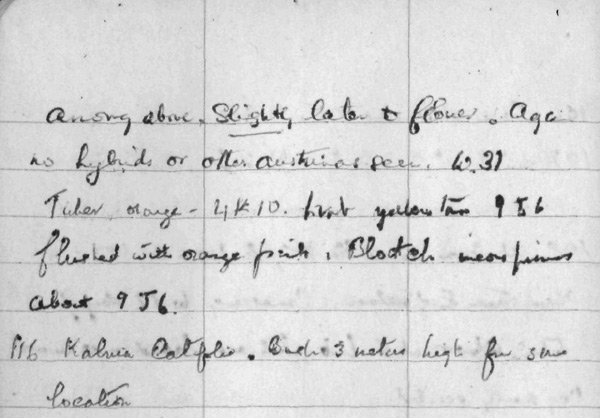 among above. Slightly later to flower. Aga
no hybrids or other austrinas seen. W. 37
Tube, orange - 4K10. yellow than 9J6
flushed with orange pink. Blotch
about 9J6.
Kalmia Latifolia. Bush 3 meters high same
location